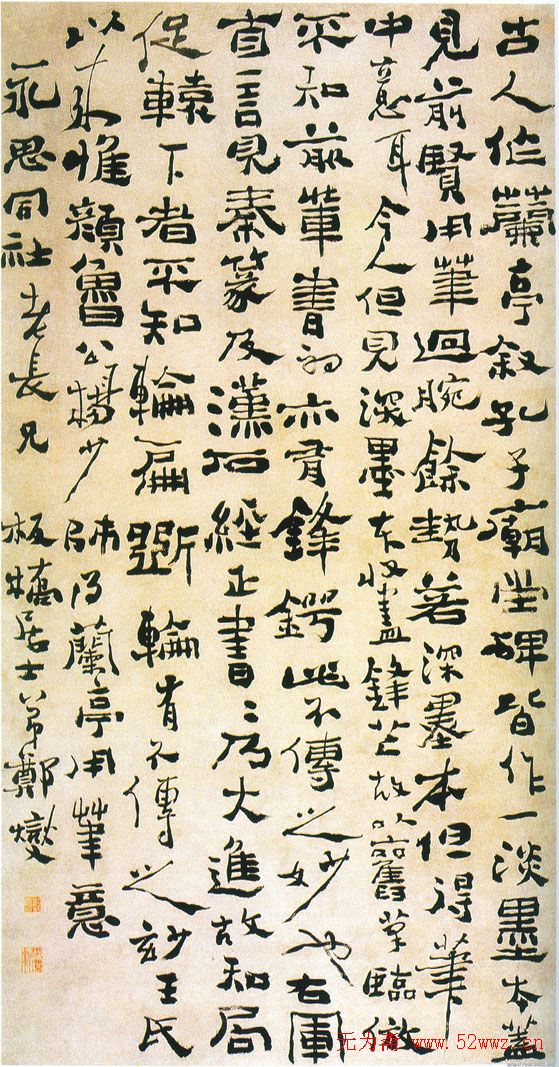 古人作蘭亭敘孔子廟堂碑皆作一淡墨本蓋
見前賢用筆迴腕餘勢若深墨本但得筆
中意耳今人但見深墨本收盡鋒芒故以舊筆臨倣
不知前輩書初亦有鋒鍔此不傳之妙也右軍
自言見秦篆及漢石經正書〻乃大進故知局
促轅下者不知輪扁斲輪有不傳之妙王氏
以來惟顏魯公楊少師得蘭亭用筆意
永思同社老長兄 板橋居士弟鄭燮
无为斋 www.52wwz.cn